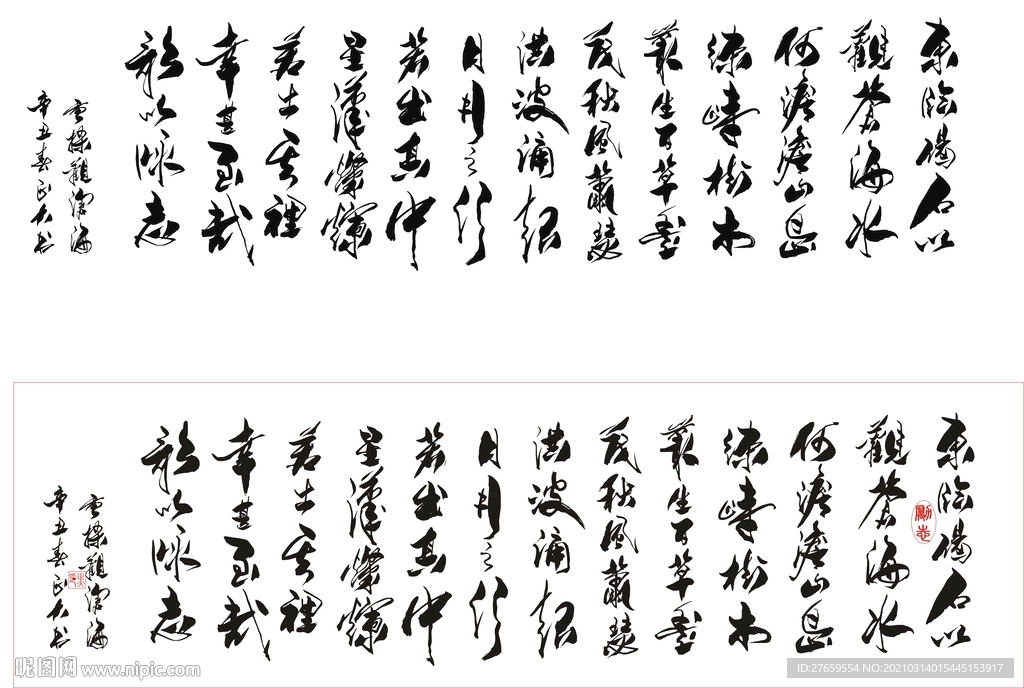 東臨碣石以
觀蒼海水
何澹澹山島
竦峙樹木
叢生百草豐
茂秋風蕭瑟
洪波涌起
日月之行
若出其中
星漢燦爛
若出其裡
幸甚至哉
歌以詠志
曹操觀滄海
辛丑春书
東臨碣石以
勵志
觀蒼海水
何澹澹山島
竦峙樹木
叢生百草豐
茂秋風蕭瑟
洪波涌起
日月之行
若出其中
星漢燦爛
若出其裡
幸甚至哉
歌以詠志
曹操觀滄海
辛丑春书
昵图网 www.nipic.com
ID:27659554 NO:20210314015445153917